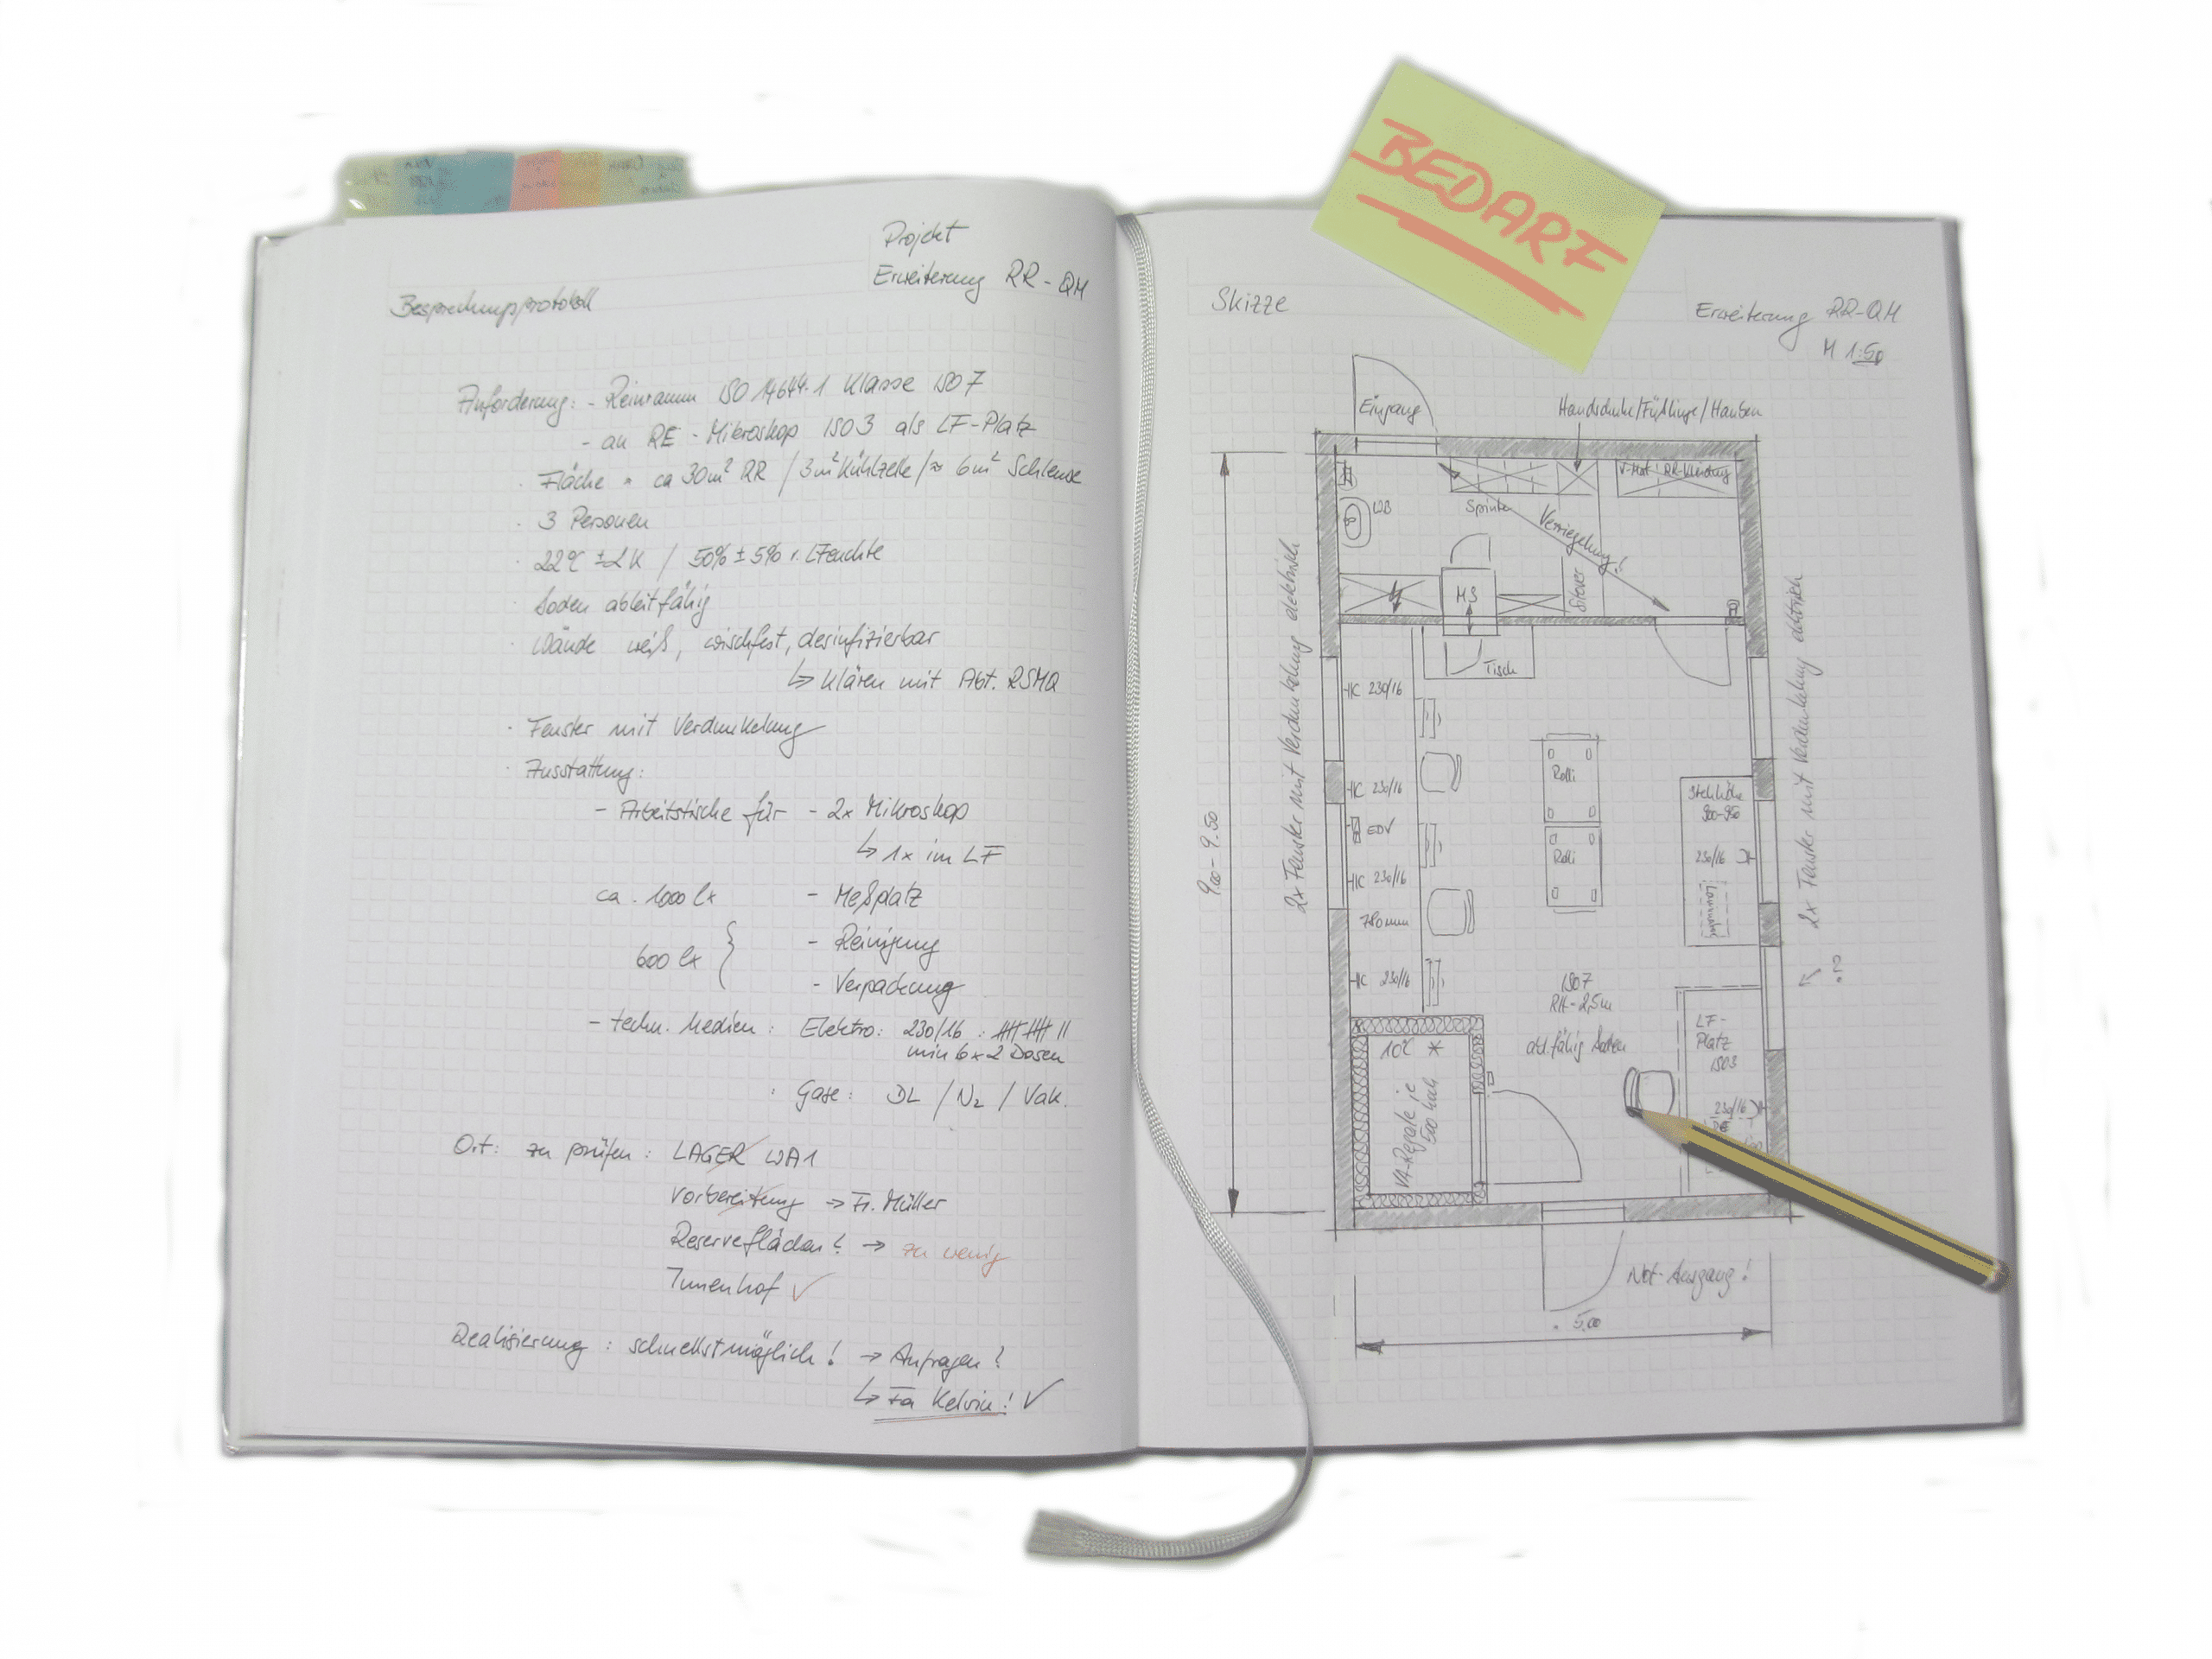 BEDARF
Projekt
Erweiterung RR-QM
Besprechungsprotokoll
Anforderung: - Reinraum ISO 14644-1 Klasse ISO 7
- an RE-Mikroskop ISO3 als LF-Platz
· Fläche ca 30m² RR / 3m² Kühlzelle / ≈ 6m² Schleuse
· 3 Personen
· 22°C ±2K / 50% ± 5% r. LFeuchte
· Boden ableitfähig
· Wände weiß, wischfest, desinfizierbar
↳ klären mit Abt. RSMQ
· Fenster mit Verdunkelung
· Ausstattung:
- Arbeitstische für - 2x Mikroskop
↳ 1x im LF
ca. 1000 lx - Meßplatz
600 lx { - Reinigung
- Verpackung
- techn. Medien: Elektro: 230/16 : |||| |||| ||
min 6x2 Dosen
· Gase: DL / N₂ / Vak.
Ort: zu prüfen: LAGER WA1
Vorbereitung → Fr. Müller
Reserveflächen? → zu wenig
Innenhof ✓
Realisierung: schnellstmöglich! → Anfragen?
↳ Fa Kelvin! ✓
Skizze
Erweiterung RR-QM
M 1:50
Eingang
Handschuhe/Füßlinge/Hauben
RR-Kleidung
WB
Spinte
Verriegelung!
MS
Steuer
Tisch
230/16
230/16
EDV
230/16
780mm
230/16
Rolli
Rolli
Stehhöhe
900-950
230/16
2x Fenster mit Verdunkelung elektrisch
2x Fenster mit Verdunkelung elektrisch
?
9.00-9.50
ISO7
RH-2,5m
abl.fähig Boden
LF-
Platz
ISO3
230/16
10°C *
VA-Regale je
500 hoch
Not-Ausgang!
5,00